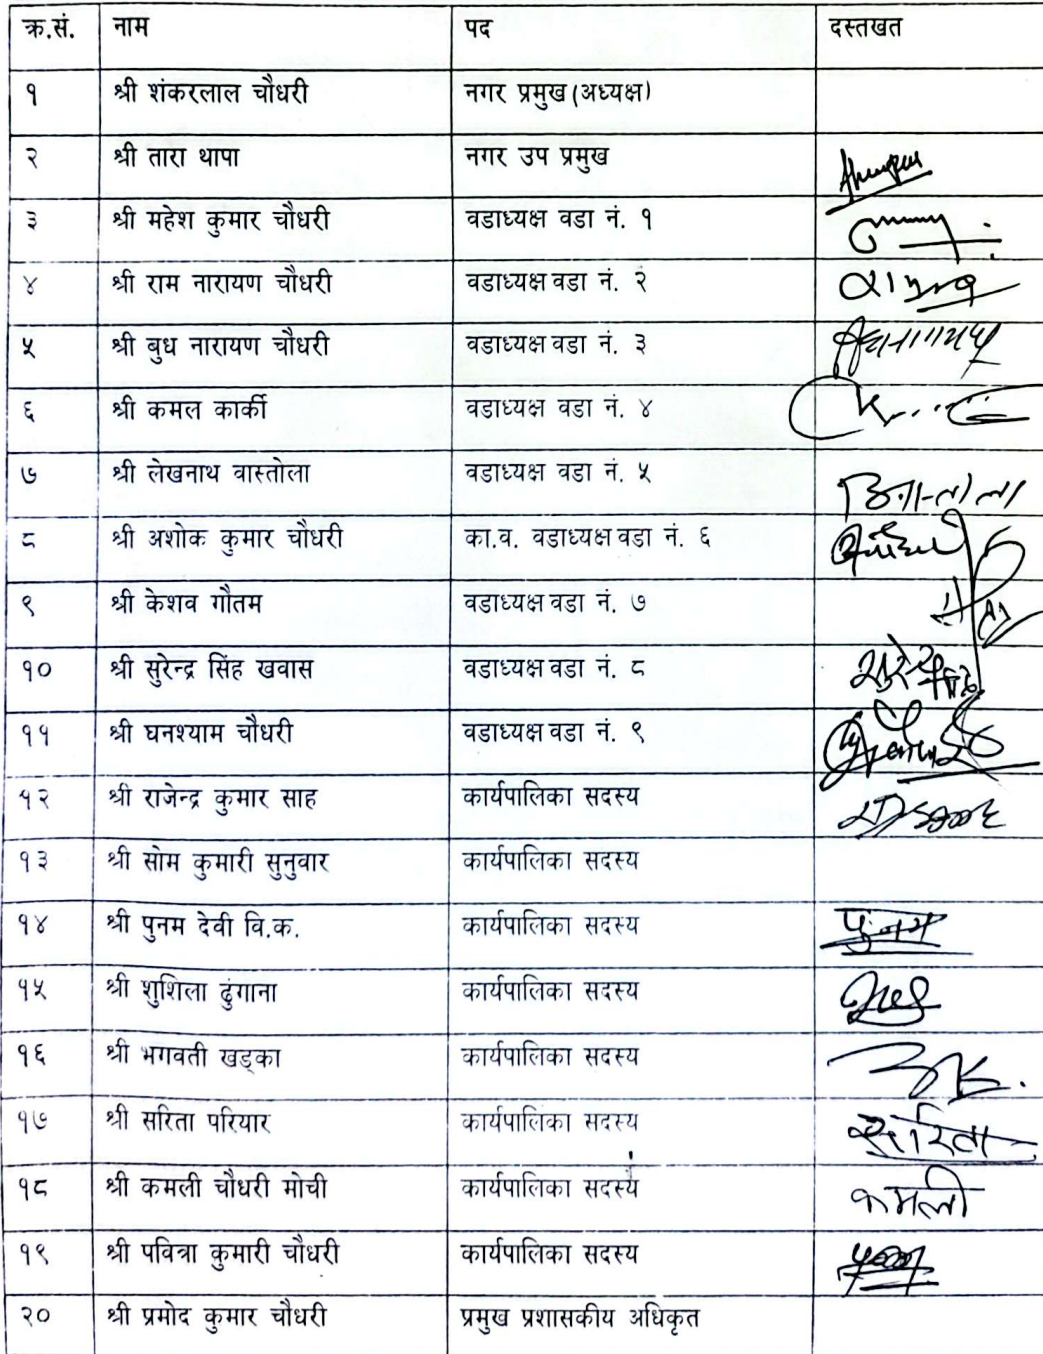 क्र.सं. नाम पद दस्तखत
१ श्री शंकरलाल चौधरी नगर प्रमुख(अध्यक्ष)
२ श्री तारा थापा नगर उप प्रमुख
३ श्री महेश कुमार चौधरी वडाध्यक्ष वडा नं. १
४ श्री राम नारायण चौधरी वडाध्यक्ष वडा नं. २
५ श्री बुध नारायण चौधरी वडाध्यक्ष वडा नं. ३
६ श्री कमल कार्की वडाध्यक्ष वडा नं. ४
७ श्री लेखनाथ वास्तोला वडाध्यक्ष वडा नं. ५
८ श्री अशोक कुमार चौधरी का.व. वडाध्यक्ष वडा नं. ६
९ श्री केशव गौतम वडाध्यक्ष वडा नं. ७
१० श्री सुरेन्द्र सिंह खवास वडाध्यक्ष वडा नं. ८
११ श्री घनश्याम चौधरी वडाध्यक्ष वडा नं. ९
१२ श्री राजेन्द्र कुमार साह कार्यपालिका सदस्य
१३ श्री सोम कुमारी सुनुवार कार्यपालिका सदस्य
१४ श्री पुनम देवी वि.क. कार्यपालिका सदस्य पुनम
१५ श्री शुशिला ढुंगाना कार्यपालिका सदस्य
१६ श्री भगवती खड्का कार्यपालिका सदस्य
१७ श्री सरिता परियार कार्यपालिका सदस्य सरिता
१८ श्री कमली चौधरी मोची कार्यपालिका सदस्य कमली
१९ श्री पवित्रा कुमारी चौधरी कार्यपालिका सदस्य
२० श्री प्रमोद कुमार चौधरी प्रमुख प्रशासकीय अधिकृत